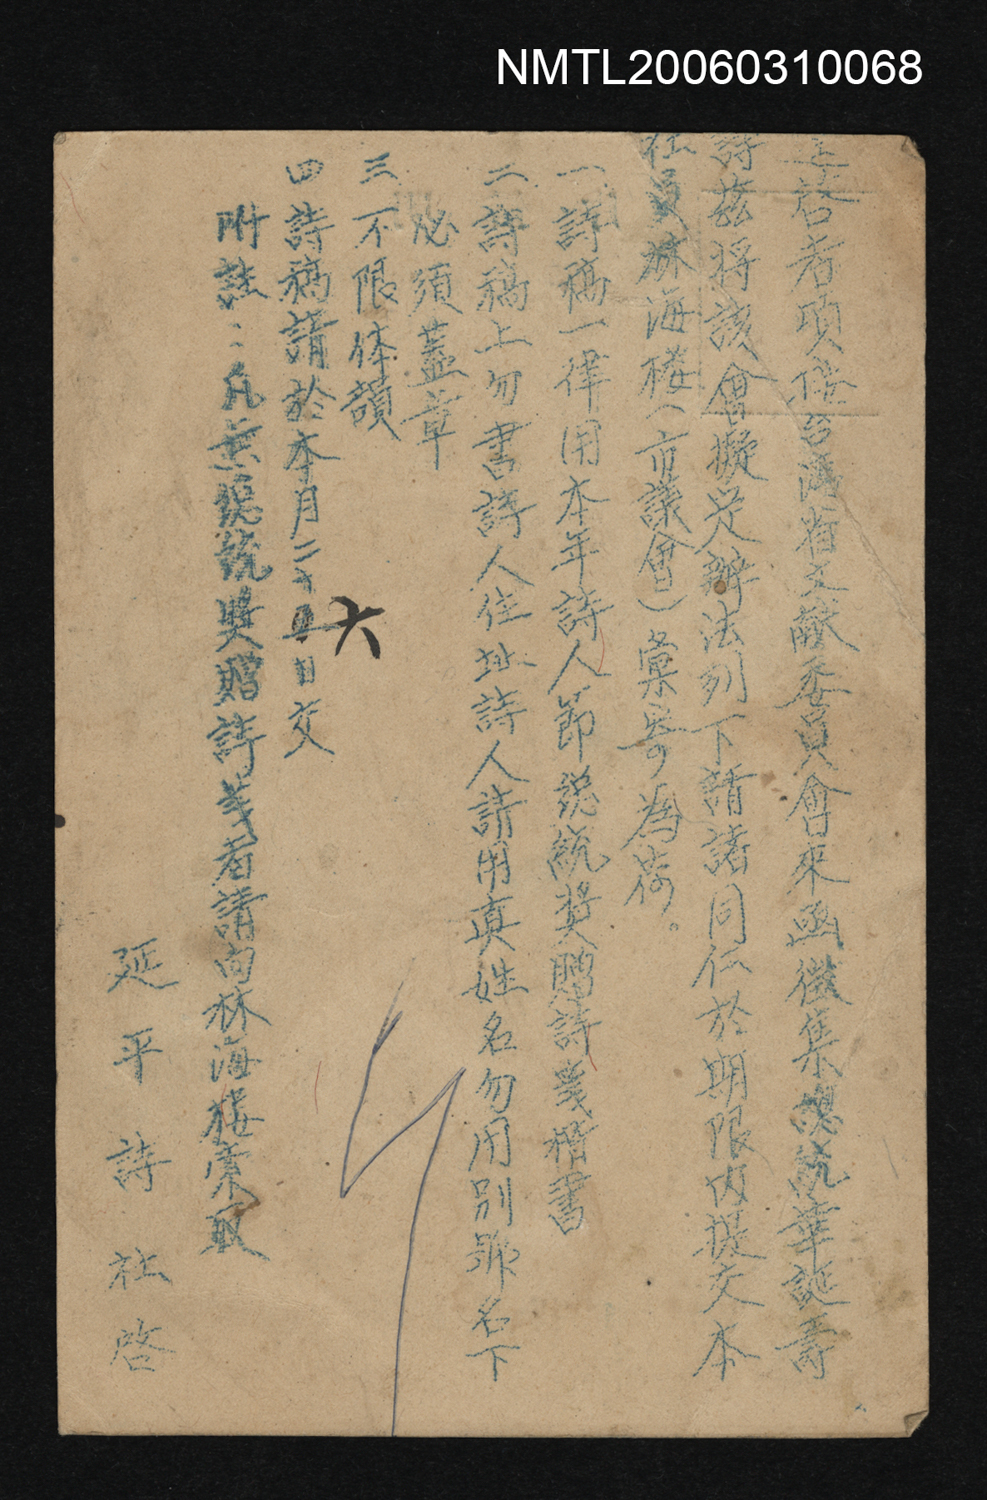 NMTL20060310068
逕啓者項接台灣省文献委員會來函徵集總統華誕壽
詩茲將該會擬定辦法列下請諸同仁於期限內提交本
社員林海楼(市議會)彙寄為荷。
一詩稿一律用本年詩人節總統獎贈詩箋楷書
二詩稿上勿書詩人住址詩人請用真姓名勿用別號名下
必須蓋章
三不限体韻
四詩稿請於本月二十五日交
六
附註:凡無總統奬贈詩箋者請向林海楼索取
延平詩社啓